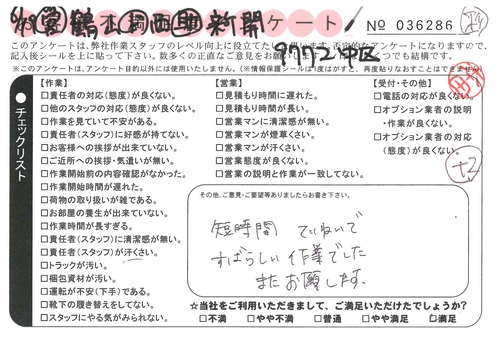 新聞
ケート
No 036286
このアンケートは、弊社作業スタッフのレベル向上に役立てたい
記入後シールを上に貼って下さい。数多くの正直なご意見をお願い
つでも結構です。
※このアンケートは、アンケート目的以外には使用いたしません。(※情報保護シールは1度はがすと、再度貼りなおすことはできません)
中区
チェックリスト
【作業】
□責任者の対応(態度)が良くない。
□他のスタッフの対応(態度)が良くない。
□作業を見ていて不安がある。
□責任者(スタッフ)に好感が持てない。
□お客様への挨拶が出来ていない。
□ご近所への挨拶・気遣いが無い。
□作業開始前の内容確認がなかった。
□作業開始時間が遅れた。
□荷物の取り扱いが雑である。
□お部屋の養生が出来ていない。
□作業時間が長すぎる。
□責任者(スタッフ)に清潔感が無い。
□責任者(スタッフ)が汗くさい。
□トラックが汚い。
□梱包資材が汚い。
□運転が不安(下手)である。
□靴下の履き替えをしてない。
□スタッフにやる気がみられない。
【営業】
□見積もり時間に遅れた。
□見積もり時間が長い。
□営業マンに清潔感が無い。
□営業マンが煙草くさい。
□営業マンが汗くさい。
□営業態度が良くない。
□営業の説明と作業が一致してない。
【受付・その他】
□電話の対応が良くない。
□オプション業者の説明
・作業が良くない。
□オプション業者の対応
(態度)が良くない。
+2
その他、ご意見・ご要望等ありましたらお書き下さい。
短時間 ていねいで
すばらしい作業でした
またお願します。
☆当社をご利用いただきまして、ご満足いただけたでしょうか?
□不満 □やや不満 □普通 □やや満足 □満足